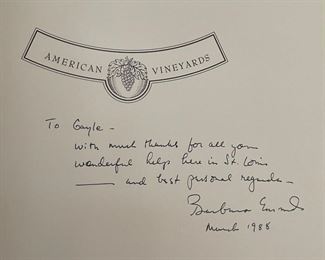 AMERICAN VINEYARDS
To Gayle -
with much thanks for all your
wonderful help here in St. Louis
—— and best personal regards -
Barbara Ensrud
March 1988